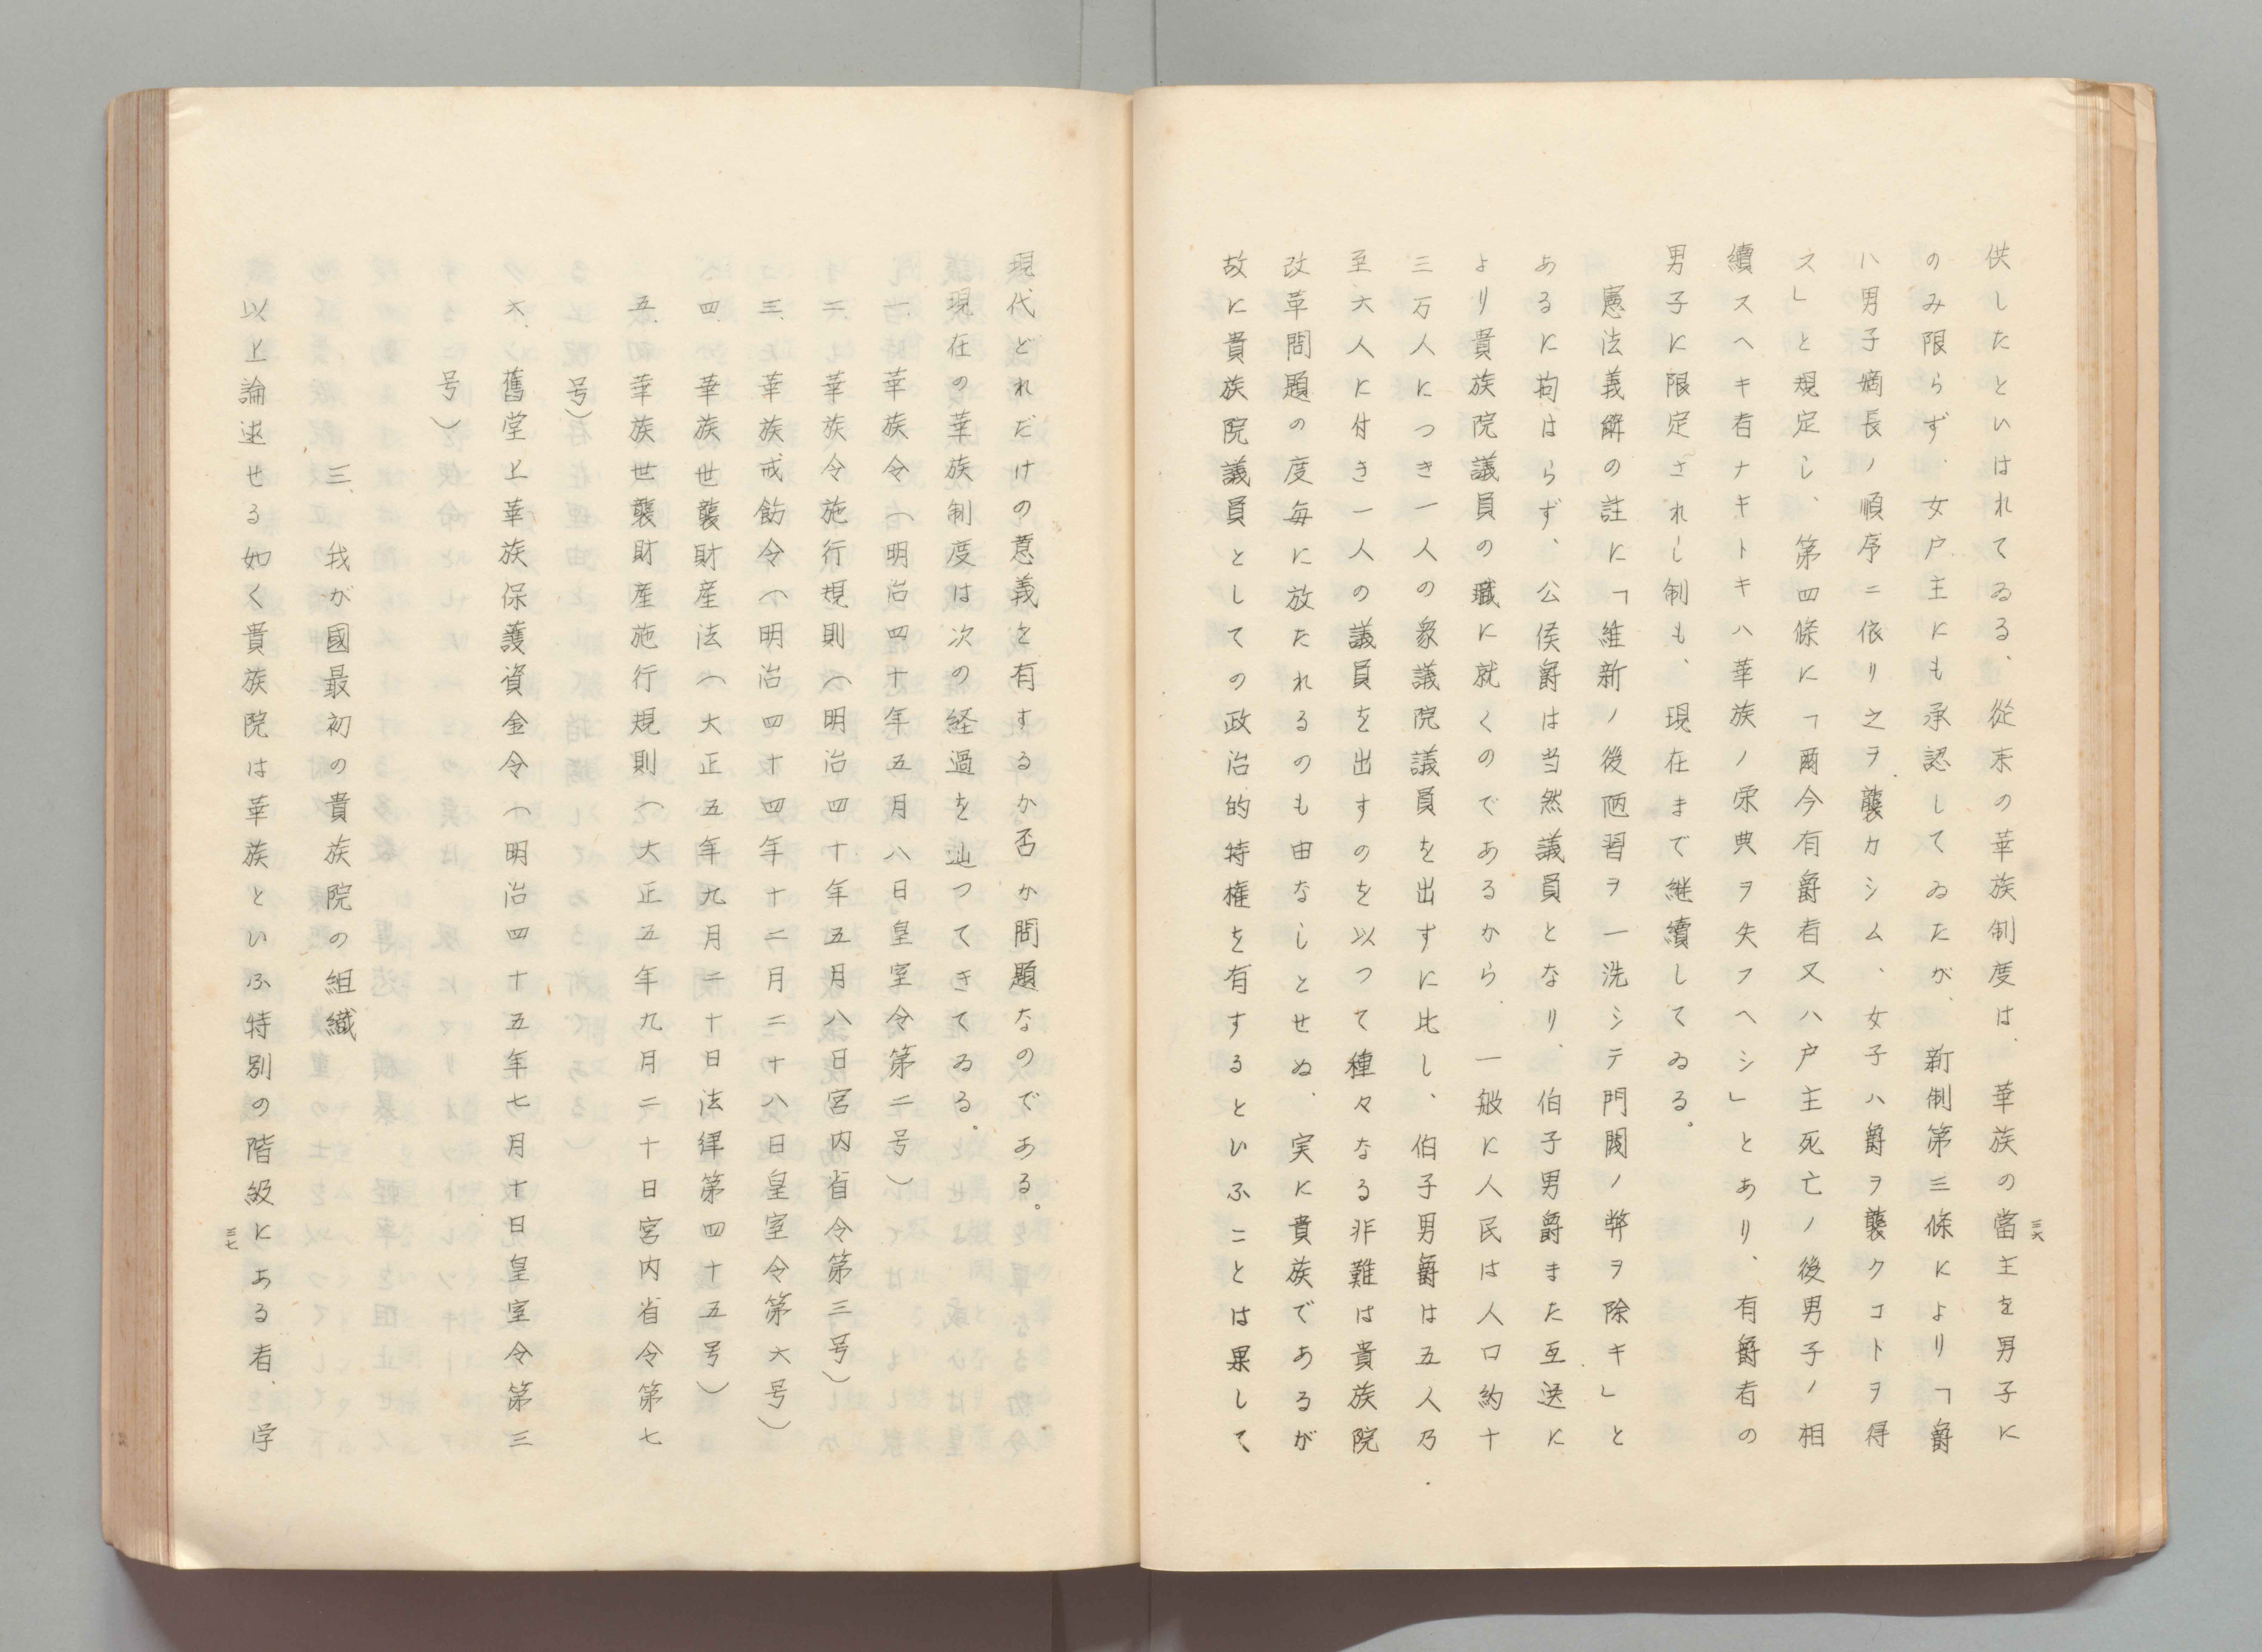 供したといはれてゐる、従来の華族制度は、華族の當主を男子に
のみ限らず、女戸主にも承認してゐたが、新制第三條により「爵
ハ男子嫡長ノ順序ニ依リ之ヲ襲カシム、女子ハ爵ヲ襲クコトヲ得
ス」と規定し、第四條に「爾今有爵者又ハ戸主死亡ノ後男子ノ相
續スヘキ者ナキトキハ華族ノ栄典ヲ失フヘシ」とあり、有爵者の
男子に限定されし制も、現在まで継續してゐる。
憲法義解の註に「維新ノ後陋習ヲ一洗シテ門閥ノ弊ヲ除キ」と
あるに拘はらず、公侯爵は当然議員となり、伯子男爵また互送に
より貴族院議員の職に就くのであるから、一般に人民は人口約十
三万人につき一人の衆議院議員を出すに比し、伯子男爵は五人乃
至六人に付き一人の議員を出すのを以つて種々なる非難は貴族院
改革問題の度毎に放たれるのも由なしとせぬ、実に貴族であるが
故に貴族院議員としての政治的特権を有するといふことは果して
三六
現代どれだけの意義を有するか否か問題なのである。
現在の華族制度は次の経過を辿つてきてゐる。
一、華族令（明治四十年五月八日皇室令第二号）
二、華族令施行規則（明治四十年五月八日宮内省令第三号）
三、華族戒飭令（明治四十四年十二月二十八日皇室令第六号）
四、華族世襲財産法（大正五年九月二十日法律第四十五号）
五、華族世襲財産施行規則（大正五年九月二十日宮内省令第七
号）
六、舊堂上華族保護資金令（明治四十五年七月十日皇室令第三
号）
三、我が國最初の貴族院の組織
以上論述せる如く貴族院は華族といふ特別の階級にある者、学
三七